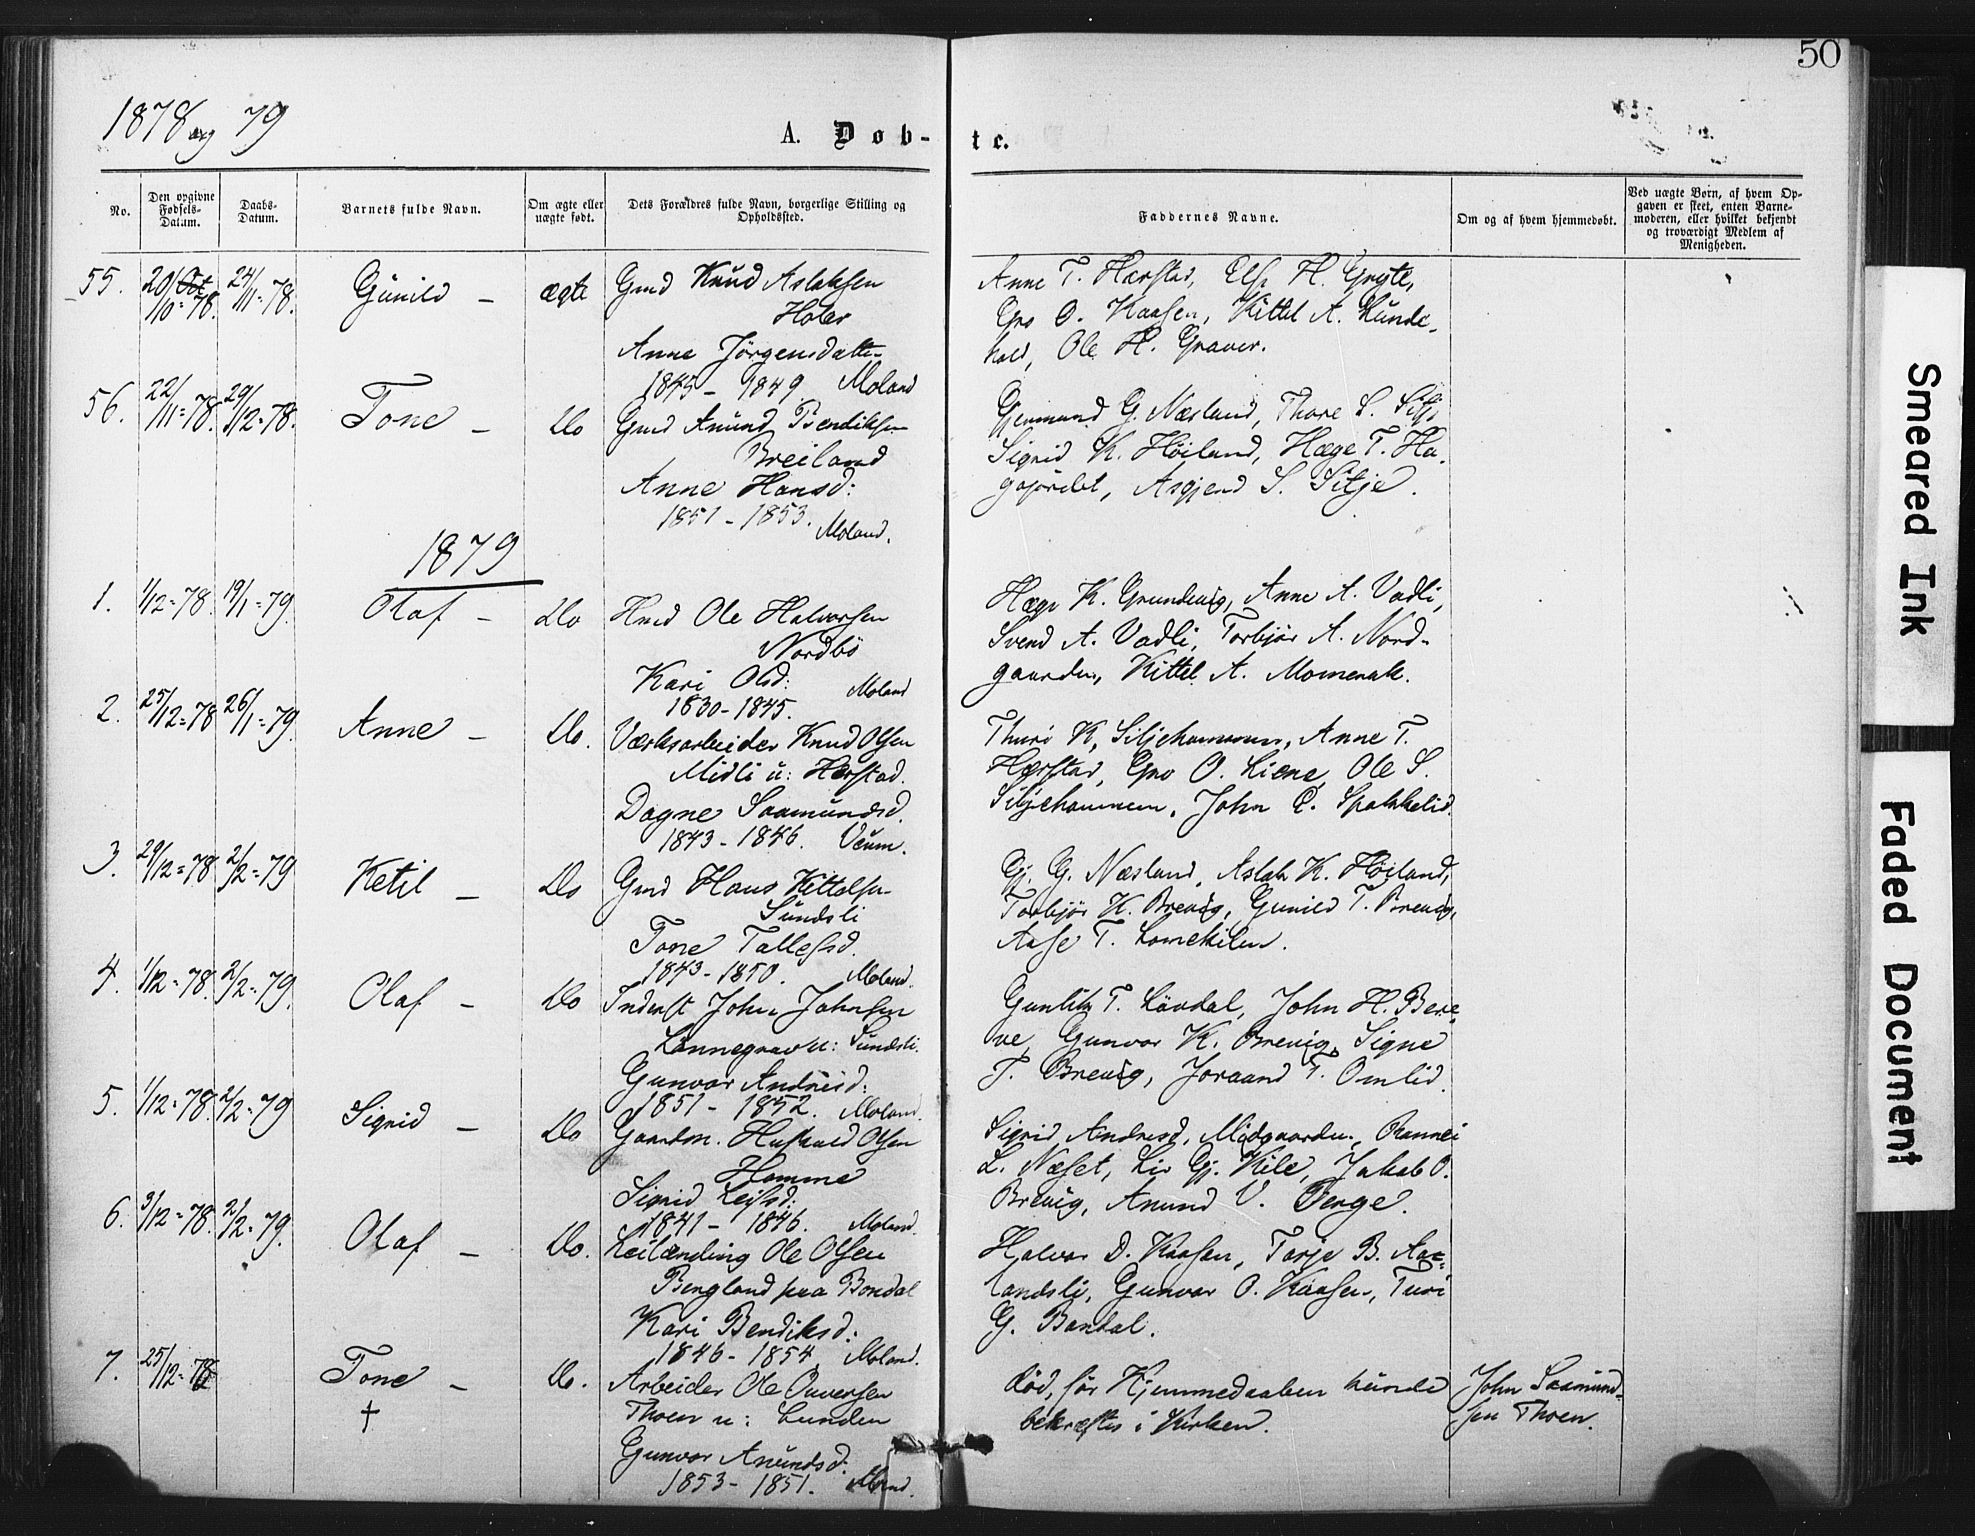 50
1878 og 79
A. Døb-
te.
No.
Den opgivne Fødsels-Datum.
Daabs-Datum.
Barnets fulde Navn.
Om ægte eller uægte født.
Dets Forældres fulde Navn, borgerlige Stilling og Opholdssted.
Faddernes Navne.
Om og af hvem hjemmedøbt.
Ved uægte Børn, af hvem Op-
gaven er skeet, enten Barne-
moderen, eller hvilket bekjendt
og troværdigt Medlem af
Menigheden.
55. 20/10=78. 24/11=78. Gunild - ægte Gmd Knud Aslaksen
Anne Jörgensdatter
1845 - 1849 Moland
Anne T. Hærstad, H.
Gro O. Kaasen, Kittel A. Lunde-
Ole H. Graver.
56. 22/11=78. 29/12=78. Tone - Do Gmd Anund Bendiksen
Breiland
Anne Hansd:
1851 - 1853. Moland.
Gjermund G. Næsland, Thore S.
Sigrid K. Höiland, Hæge T. Ha-
S. Sitje.
1879
1. 1/12=78. 19/1=79. Olaf - Do Hmd Ole Halvorsen
Nordbö
Kari Olsd: Moland
1830 - 1845.
Hæge K. Grundevig, Anne A. Vadli,
Svend A. Vadli, Torbjör A. Nord-
gaarden, Kittel A. Momerak.
2. 25/12=78 26/1=79. Anne - Do. Værksarbeider Knud Olsen
Midli u: Hærstad.
Dagne Saamundsd.
1843 - 1846. Veum.
Thuri K. Siljehammen, Anne T.
Hærstad, Gro O. Liene, Ole S.
Siljehammen, John Spokkelid.
3. 29/12=78 2/2=79 Ketil - Do Gmd Hans Kittelsen
Sundsli
Tone Tallefsd.
1843 - 1850. Moland.
Gj. G. Næsland, Aslak K. Höiland,
Torbjör K. Brevig, Gunild T. Brevig,
Aase T. Lomekilen.
4. 1/12=78. 2/2=79. Olaf - Do Inderst John Johnsen
Lönnegrav u: Sundsli.
Gunvor Andresd:
1851 - 1852. Moland.
T. Lövdal, John H. Berge
Gunvor K. Brevig, Signe
T. Brevig, Joraand T. Omlid.
5. 1/12=78. 2/2=79 Sigrid - Do Gaardm. Olsen
Homme
Sigrid Leifsd:
1841 - 1846. Moland.
Sigrid Andresd. Midgaarden,
L. Næset, Liv Gj. Kile, Jakob O.
Brevig, Anund V. Berge.
6. 3/12=78. 2/2=79. Olaf - Do. Leilænding Ole Olsen
Bergland paa Bondal
Kari Bendiksd:
1846 - 1854. Moland.
Halvor D. Kaasen, Tarje B. Aas-
landsli, Gunvor O. Kaasen, Turi
G. Bondal.
7. 25/12=78 Tone - † Do. Arbeider Ole Ouversen
Thoen u: Lunden
Gunvor Anundsd.
1853 - 1851. Moland.
död, för Hjemmedaaben kunde
bekræftes i Kirken.
John Saamund-
sen Thoen.
Smeared Ink
Faded Document